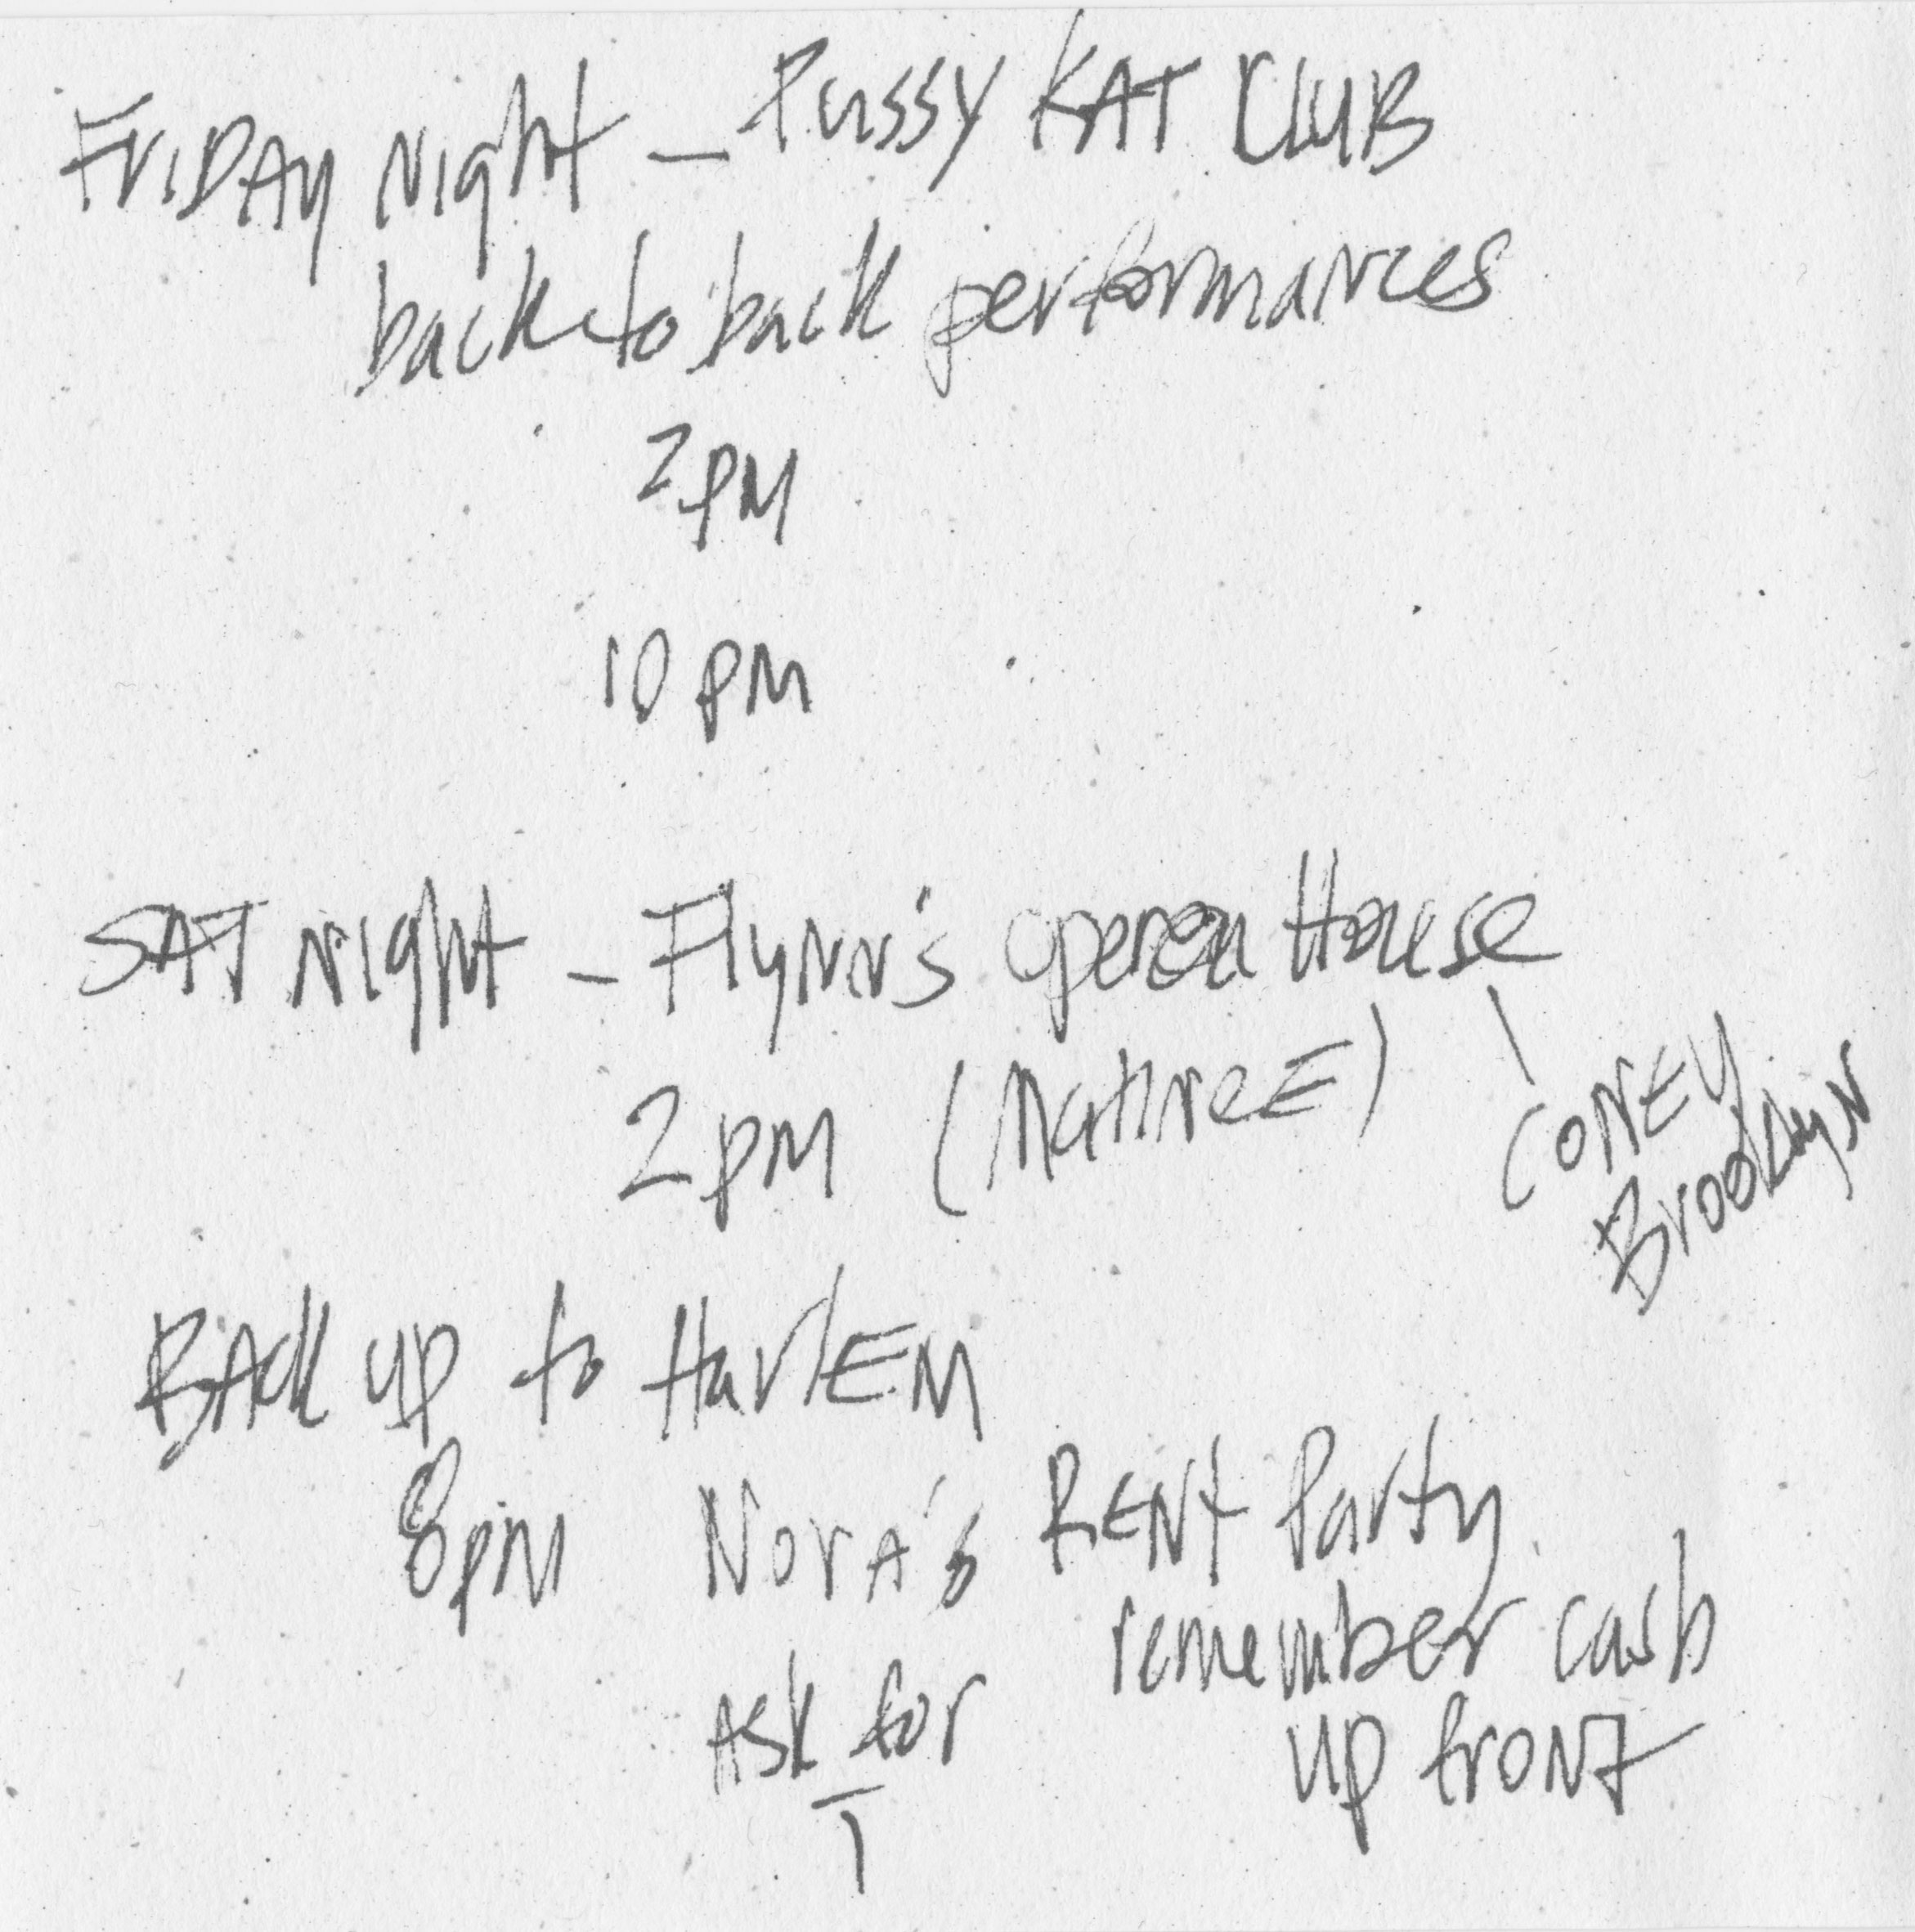 FRIDAY Night – Pussy KAT CLUB
back to back performances
7PM
10 PM
SAT Night – Flynn's opera House
2pm (MatineE)
CONEY
Brooklyn
BAck up to HarlEM
8pm Nora's RENt Party
remember cash
up front
Ask for
T